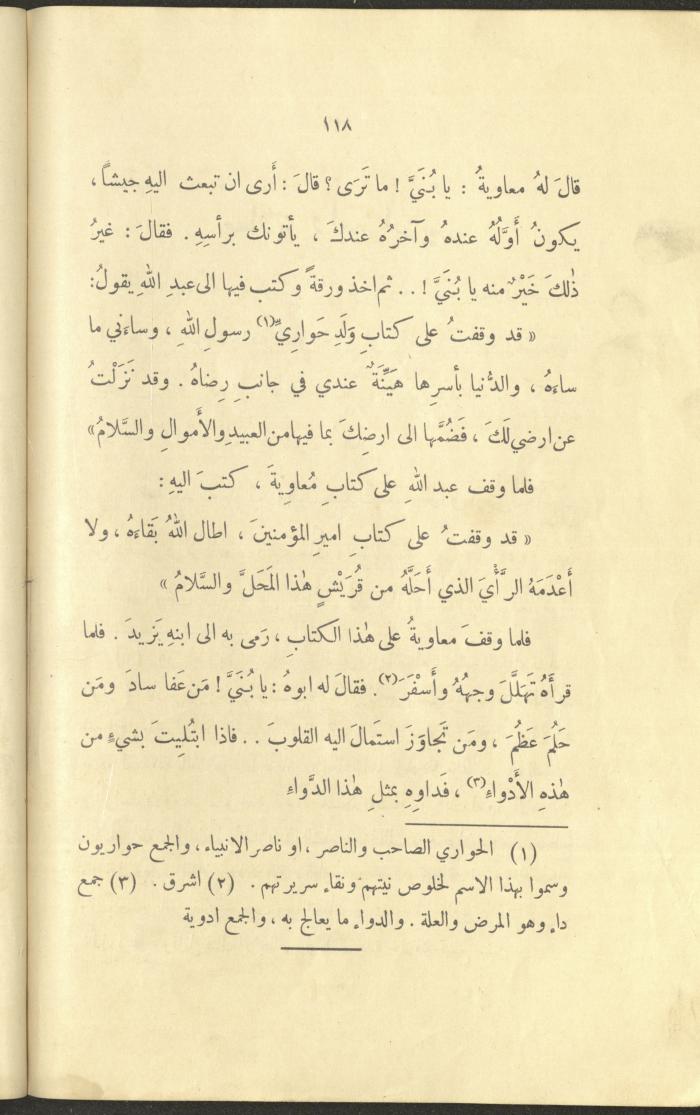 ١١٨
قالَ لهُ معاويةُ : يا بُنَيَّ ! ما تَرَى ؟ قالَ : أَرى ان تبعث اليهِ جيشاً ،
يكونُ أَوَّلُهُ عندهُ وآخرُهُ عندكَ ، يأتونك برأسِهِ . فقالَ : غيرُ
ذٰلكَ خَيْرٌ منه يا بُنَيَّ ! . . ثم اخذ ورقةً وكتب فيها الى عبدِ اللهِ يقولُ :
« قد وقفتُ على كتابِ وَلَدِ حَوارِيِّ(١) رسولِ اللهِ ، وساءَني ما
ساءَهُ ، والدُّنيا بأسرِها هَيِّنَةٌ عندي في جانبِ رِضاهُ . وقد نَزَلْتُ
عن ارضي لَكَ ، فَضُمَّها الى ارضِكَ بما فيها من العبيدِ والأَموالِ والسَّلامُ »
فلما وقف عبد اللهِ على كتابِ مُعاوِيةَ ، كتبَ اليهِ :
« قد وقفتُ على كتابِ اميرِ المؤمنينَ ، اطال اللهُ بَقاءَهُ ، ولا
أَعْدَمَهُ الرَّأْيَ الذي أَحَلَّهُ من قُرَيْشٍ هٰذا المَحَلَّ والسَّلامُ »
فلما وقفَ معاويةُ على هٰذا الكتابِ ، رَمى به الى ابنهِ يَزيدَ . فلما
قرأَهُ تَهَلَّلَ وجهُهُ وأَسْفَرَ(٢) . فقالَ له ابوهُ : يا بُنَيَّ ! مَن عَفا سادَ ومَن
حَلُمَ عَظُمَ ، ومَن تَجاوَزَ استَمالَ اليه القلوبَ . . فاذا ابتُليتَ بشيءٍ من
هٰذهِ الأَدْواءِ(٣) ، فَداوِهِ بمثلِ هٰذا الدَّواءِ
(١) الحواري الصاحب والناصر ، او ناصر الانبياء ، والجمع حواريون
وسموا بهذا الاسم لخلوص نيتهم ونقاء سريرتهم . (٢) اشرق . (٣) جمع
داء وهو المرض والعلة . والدواء ما يعالج به ، والجمع ادوية